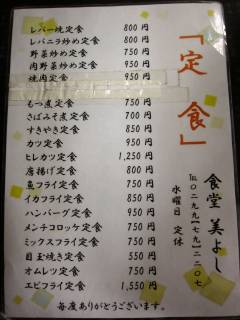 「定食」
食堂 美よし
℡〇二九九(七九)二二〇七
水曜日 定休
レバー焼定食 800円
レバニラ炒め定食 800円
野菜炒め定食 750円
肉野菜炒め定食 950円
焼肉定食 950円
もつ煮定食 750円
さばみそ煮定食 700円
すきやき定食 850円
カツ定食 950円
ヒレカツ定食 1,250円
唐揚げ定食 800円
魚フライ定食 750円
イカフライ定食 850円
ハンバーグ定食 950円
メンチコロッケ定食 750円
ミックスフライ定食 750円
目玉焼き定食 550円
オムレツ定食 750円
エビフライ定食 1,550円
毎度ありがとうございます。